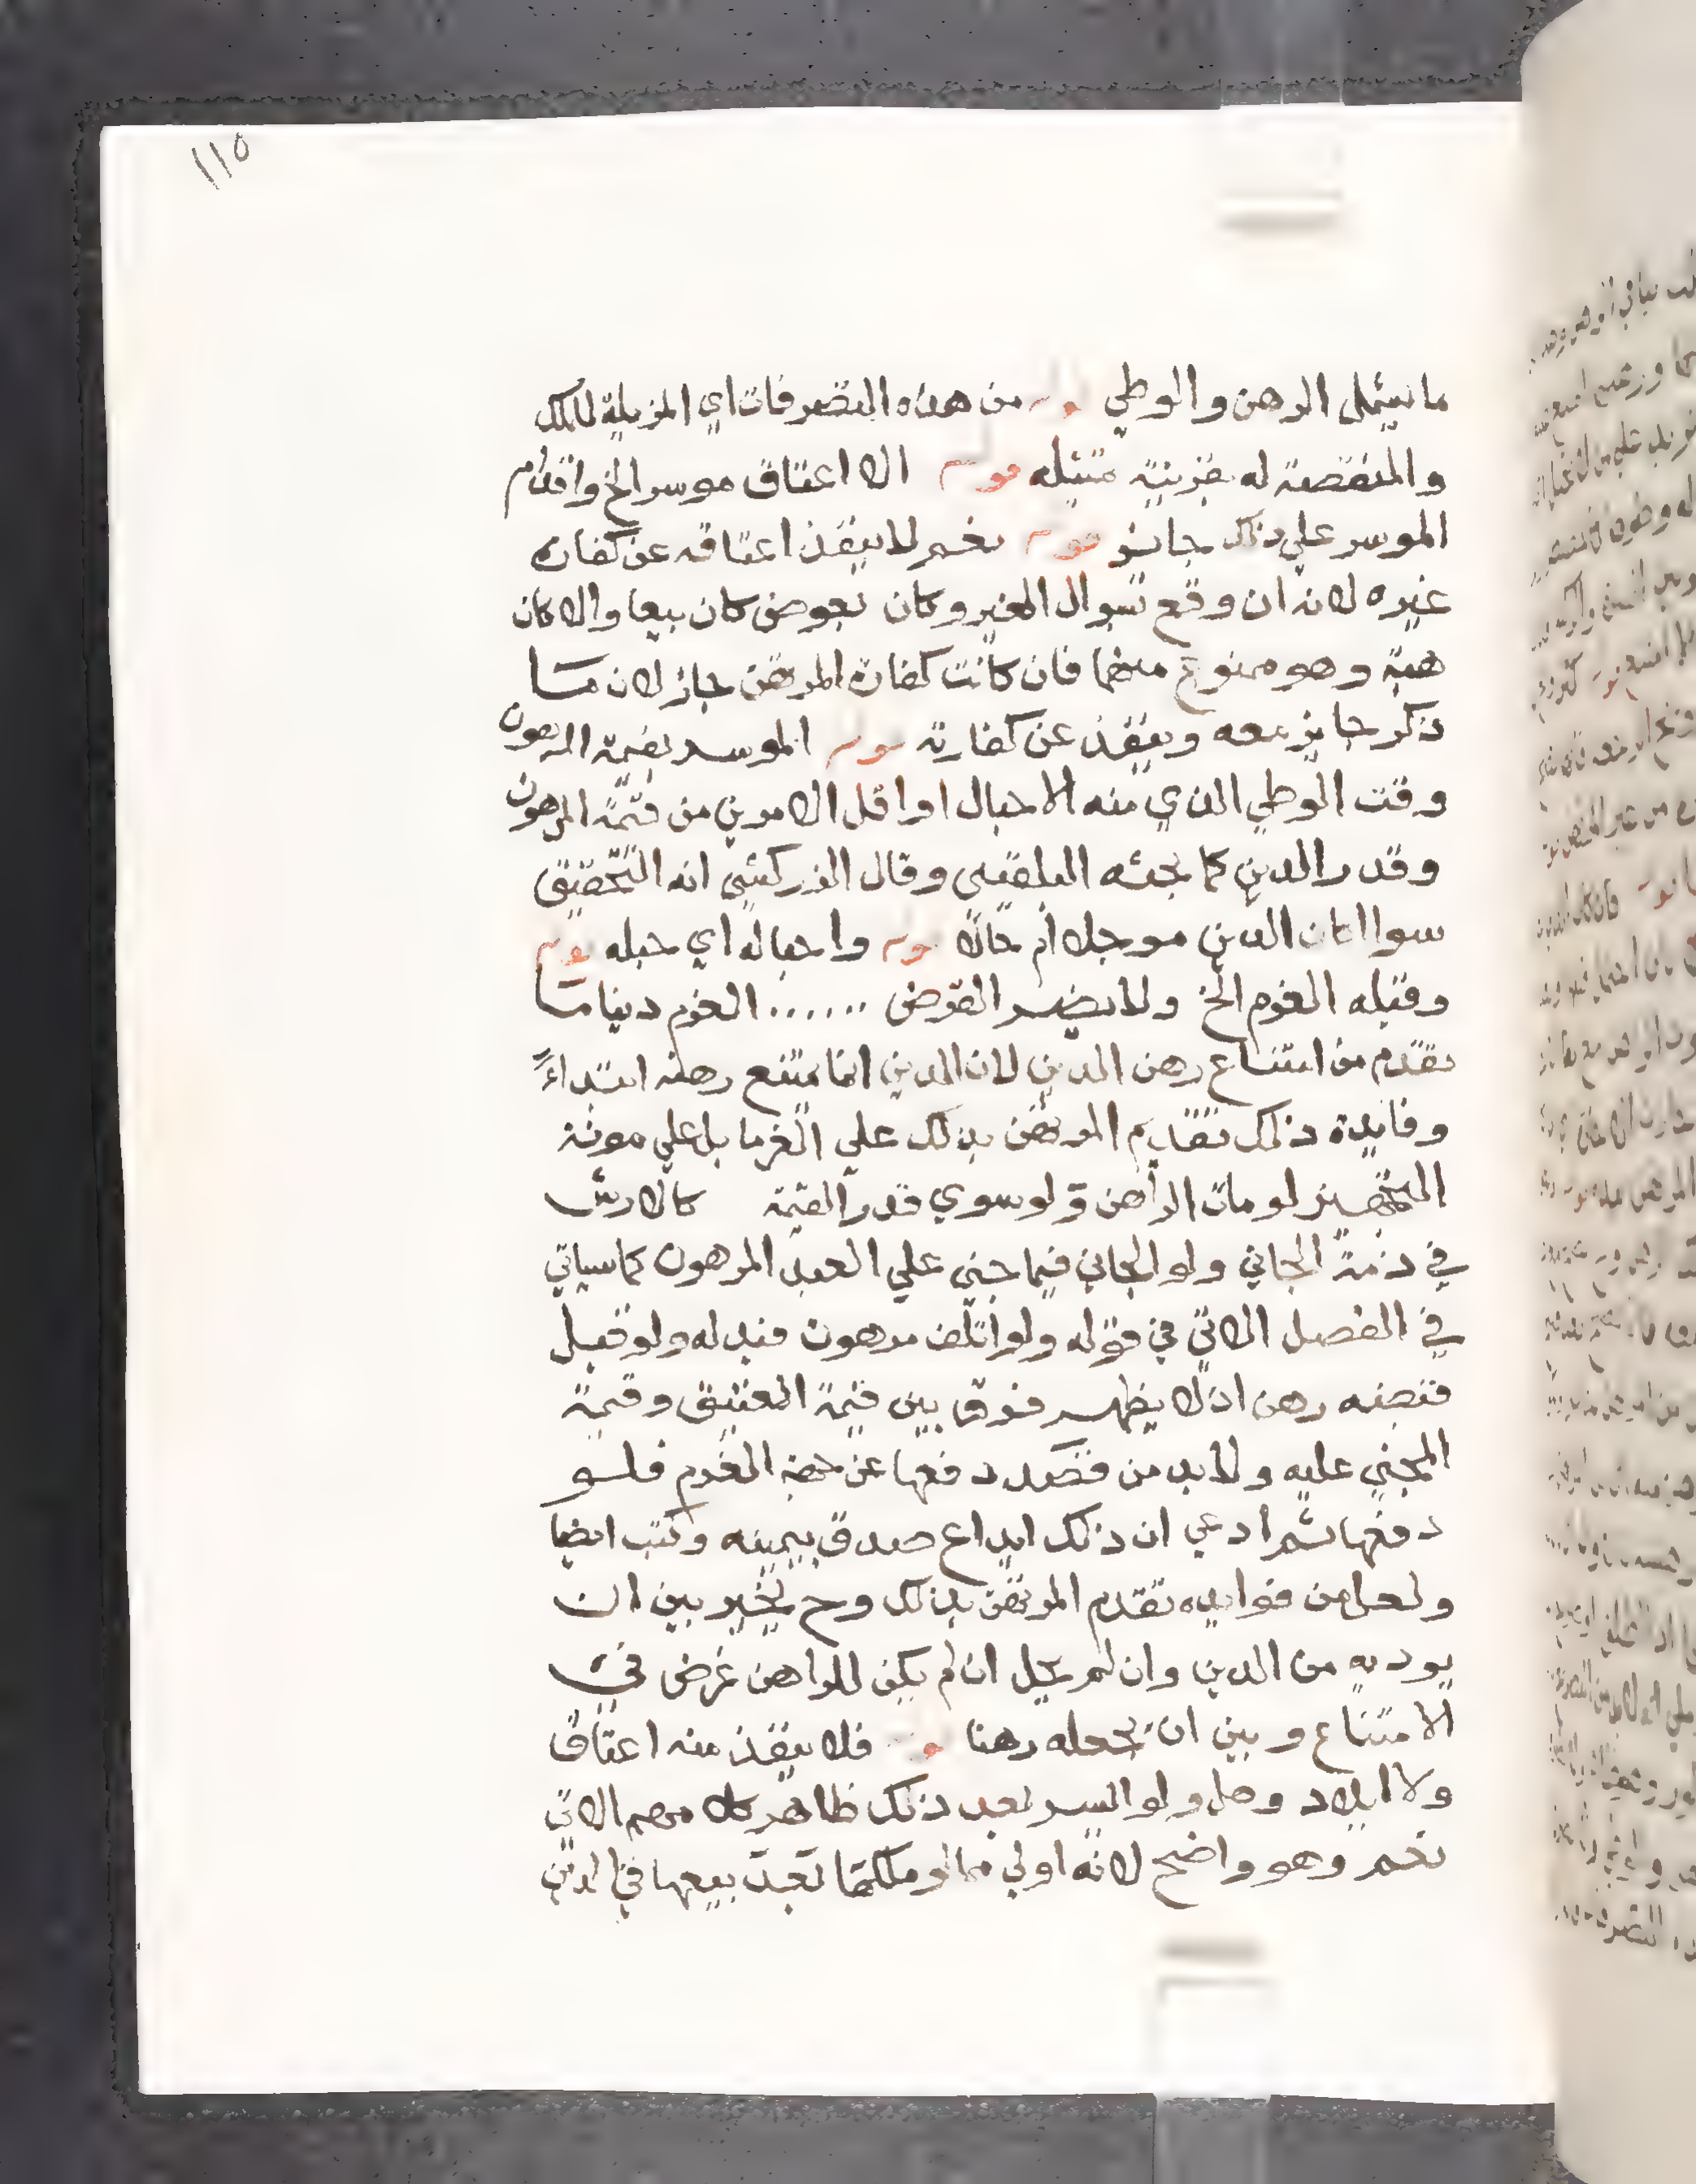 ١١٥
ما يشمل الرهن والوطي قوله من هذه التصرفات اي المزيلة للملك
والمنقصة له بقرينة مثيله قوله الا اعتاق موسر الخ واقدام
الموسر علي ذلك جايز قوله نعم لا ينفذ اعتاقه عن كفارة
غيره لانه ان وقع بسوال الغير وكان بعوض كان بيعا والا كان
هبة وهو ممنوع منهما فان كانت كفارة المرتهن جاز لان ما
ذكر جايز معه وينفذ عن كفارته قوله الموسر بقيمة المرهون
وقت الوطي الذي منه الاحبال او اقل الامرين من قيمة المرهون
وقدر الدين كما بحثه البلقيني وقال الزركشي انه التحقيق
سوا اكان الدين موجلا أم حالا قوله واحباله اي حبله قوله
وقبله الغرم الخ ولا يضر الفرض ...... الغرم دينا ما
تقدم من امتناع رهن الدين لان الدين انما يمتنع رهنه ابتداءً
وفايدة ذلك تقديم المرتهن بذلك علي الغرما بل علي مونة
التجهيز لو مات الراهن ولو سوي قدر القيمة كالارش
في ذمة الجاني ولو الجاني فيما جني علي العبد المرهون كما سياتي
في الفصل الاتي في قوله ولو اتلف مرهون فبدله ولو قبل
قبضه رهن اذ لا يظهر فرق بين قيمة العتيق وقيمة
المجني عليه ولا بد من قصد دفعها عن جهة الغرم فلو
دفعها ثم ادعي ان ذلك ايداع صدق بيمينه وكتب ايضا
ولعل من فوايده تقدم المرتهن بذلك وح يخير بين ان
يوديه من الدين وان لم يحل ان لم يكن للراهن غرض في
الامتناع وبين ان يجعله رهنا قوله فلا ينفذ منه اعتاق
ولا ايلاد وهل ولو ايسر بعد ذلك ظاهر كلامهم الاتي
نعم وهو واضح لانه اولي مما لو ملكها بعد بيعها في الدين